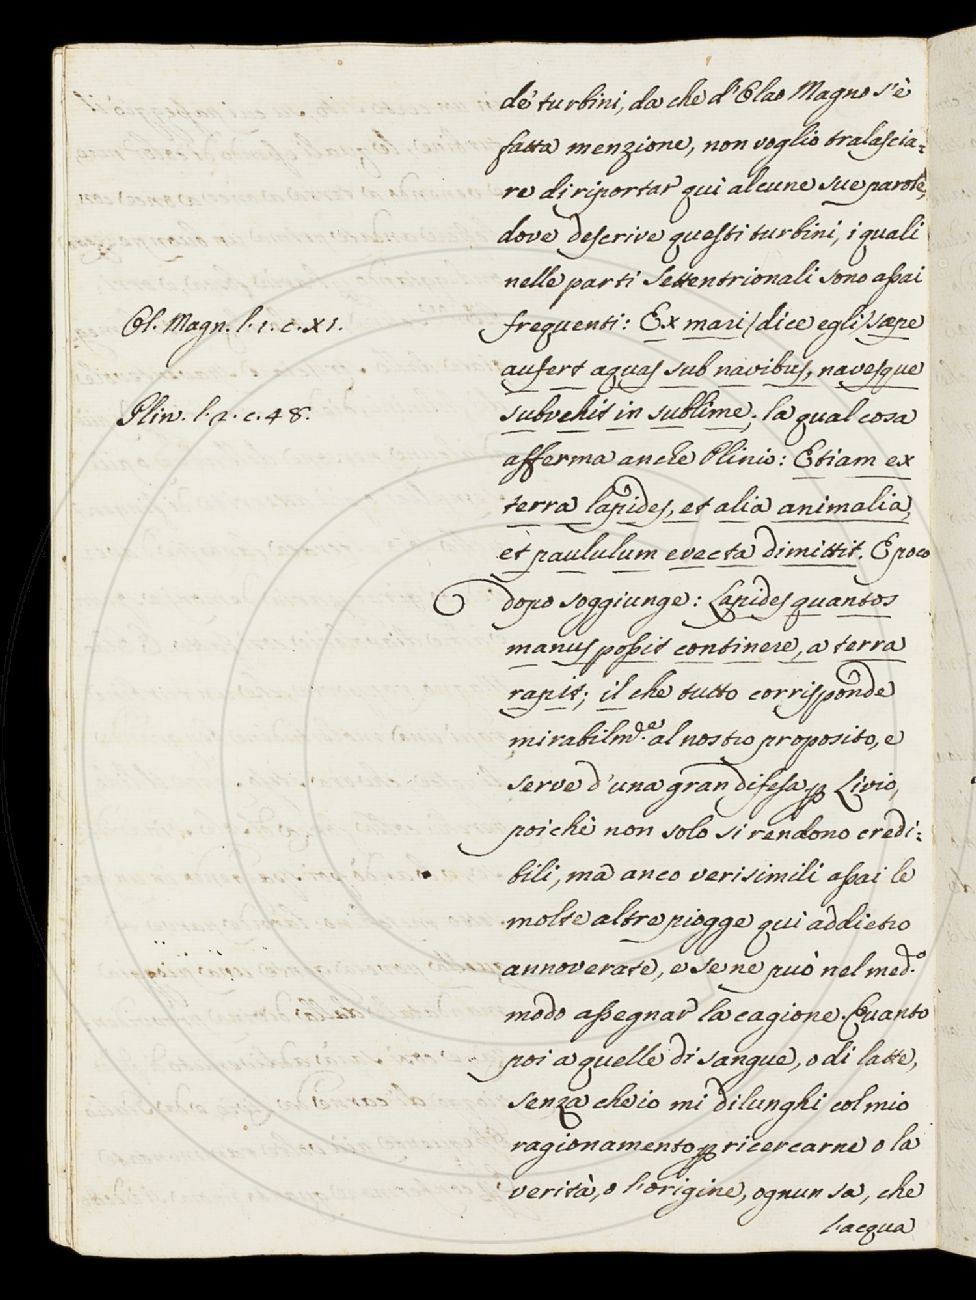 de' turbini, da che d'Olao Magno s'è
fatta menzione, non voglio tralascia=
re di riportar qui alcune sue parole,
dove descrive questi turbini, i quali
nelle parti Settentrionali sono assai
Ol. Magn. l. 1. c. XI.
frequenti: Ex mari / dice egli / sæpe
aufert aquas sub navibus, navesque
Plin. l. 2. c. 48.
subvehit in sublime; la qual cosa
afferma anche Plinio: Etiam ex
terra lapides, et alia animalia,
et paululum evecta dimittit. E poco
dopo soggiunge: Lapides quantos
manus possit continere, a terra
rapit; il che tutto corrisponde
mirabilm.e al nostro proposito, e
serve d'una gran difesa p Livio,
poichè non solo si rendono credi=
bili, ma anco verisimili assai le
molte altre piogge qui addietro
annoverate, e se ne può nel med.o
modo assegnar la cagione. Quanto
poi a quelle di sangue, o di latte,
senza che io mi dilunghi col mio
ragionamento p ricercarne o la
verità, o l'origine, ognun sa, che
l'acqua